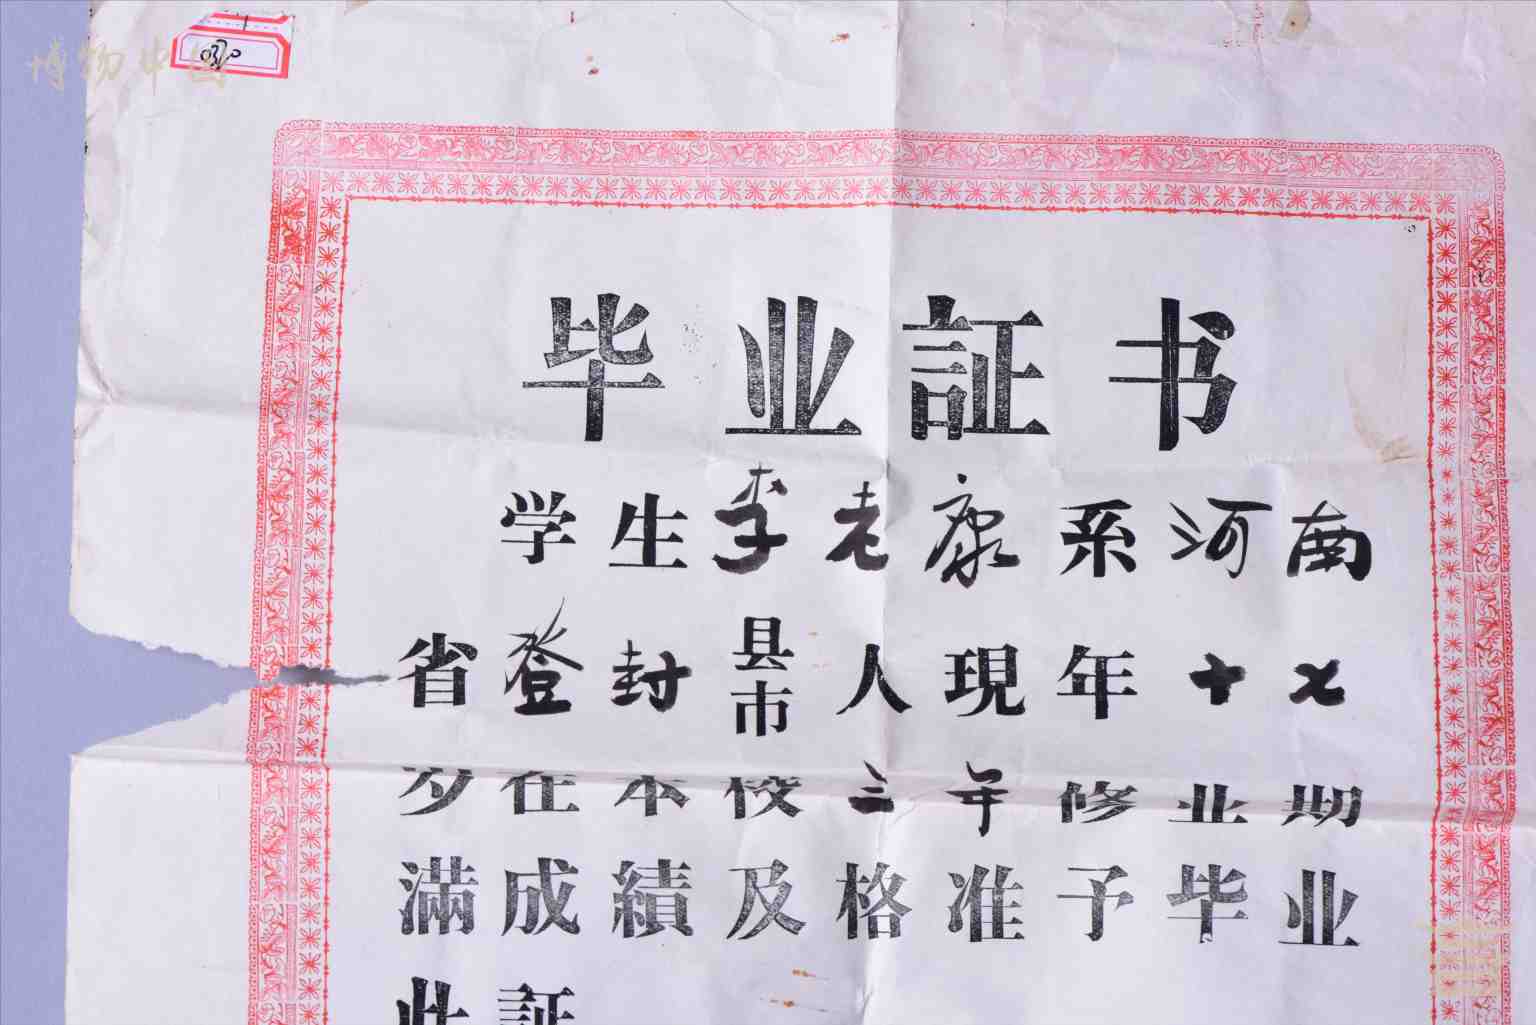 博物中国
0370
毕业証书
学生李老康系河南
省登封县市人現年十七
岁在本校三年修业期
滿成績及格准予毕业
此証